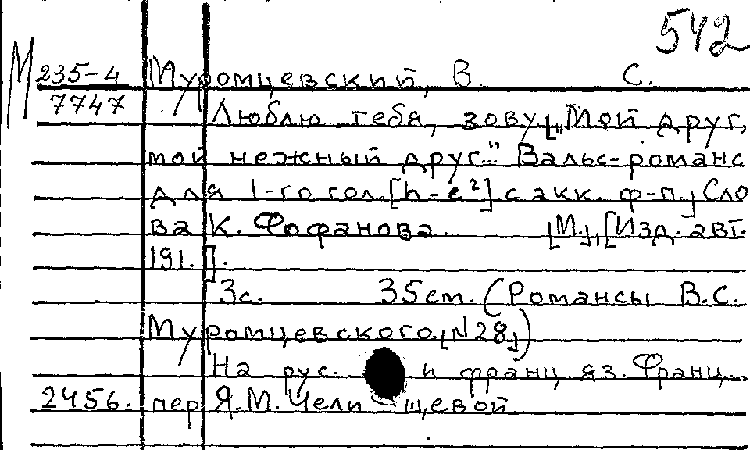 542
М 235-4 Муромцевский, В. С.
7747 Люблю тебя, зову[„Мой друг,
мой нежный друг..." Вальс-романс
для 1-го гол. [h-e²] с акк. ф-п.] Сло
ва К. Фофанова. [М.], [Изд. авт.
191. ].
3с. 35см. (Романсы В.С.
Муромцевского [N28])
На рус. и франц. яз. Франц.
2456. пер Я.М. Челищевой